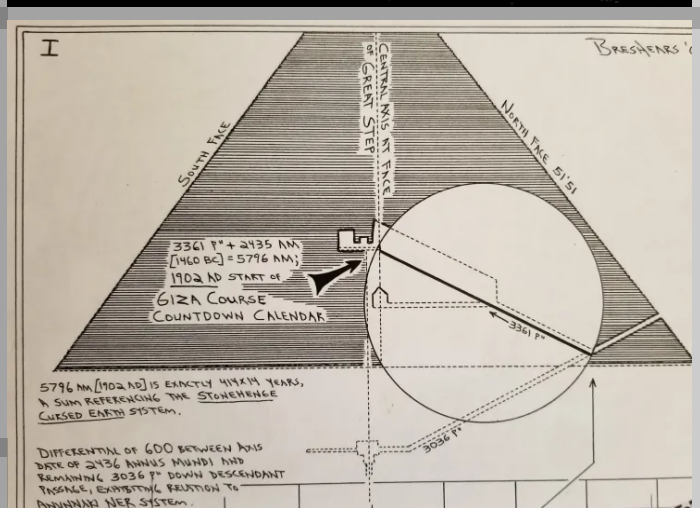 I
BRESHEARS '
SOUTH FACE
CENTRAL AXIS AT FACE
OF GREAT STEP
NORTH FACE 51°51
3361 P" + 2435 AM
[1460 BC] = 5796 AM;
1902 AD START OF
GIZA COURSE
COUNTDOWN CALENDAR
3361 P"
5796 AM [1902 AD] IS EXACTLY 414X14 YEARS,
A SUM REFERENCING THE STONEHENGE
CURSED EARTH SYSTEM.
3036 P"
DIFFERENTIAL OF 600 BETWEEN AXIS
DATE OF 2436 ANNUS MUNDI AND
REMAINING 3036 P" DOWN DESCENDANT
PASSAGE, EXHIBITING RELATION TO
ANUNNAKI NER SYSTEM.